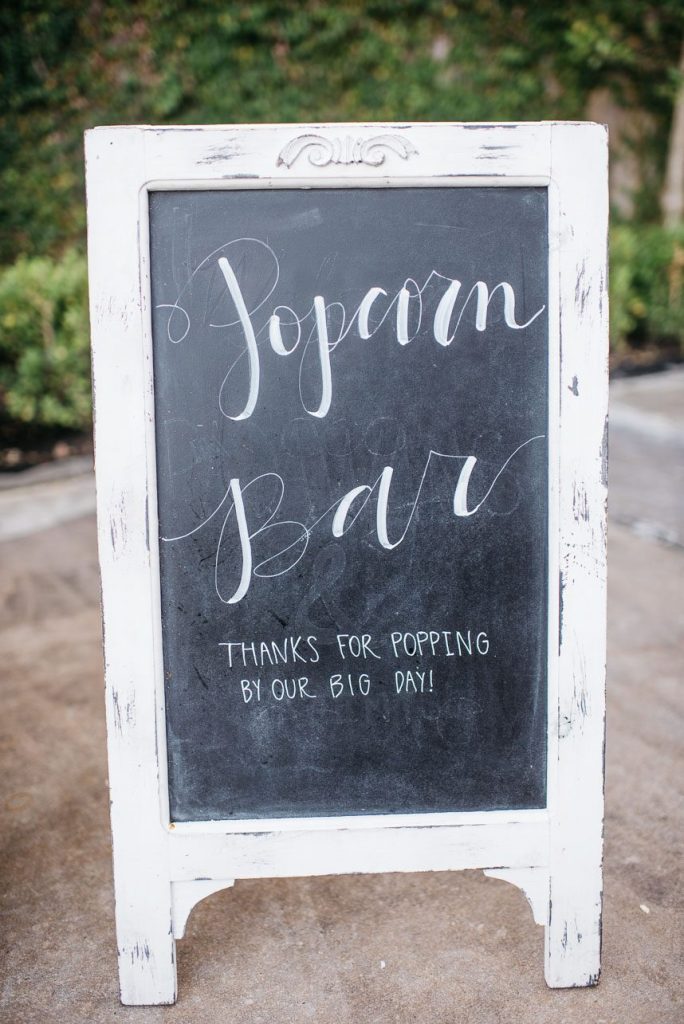 Popcorn
Bar
THANKS FOR POPPING
BY OUR BIG DAY!